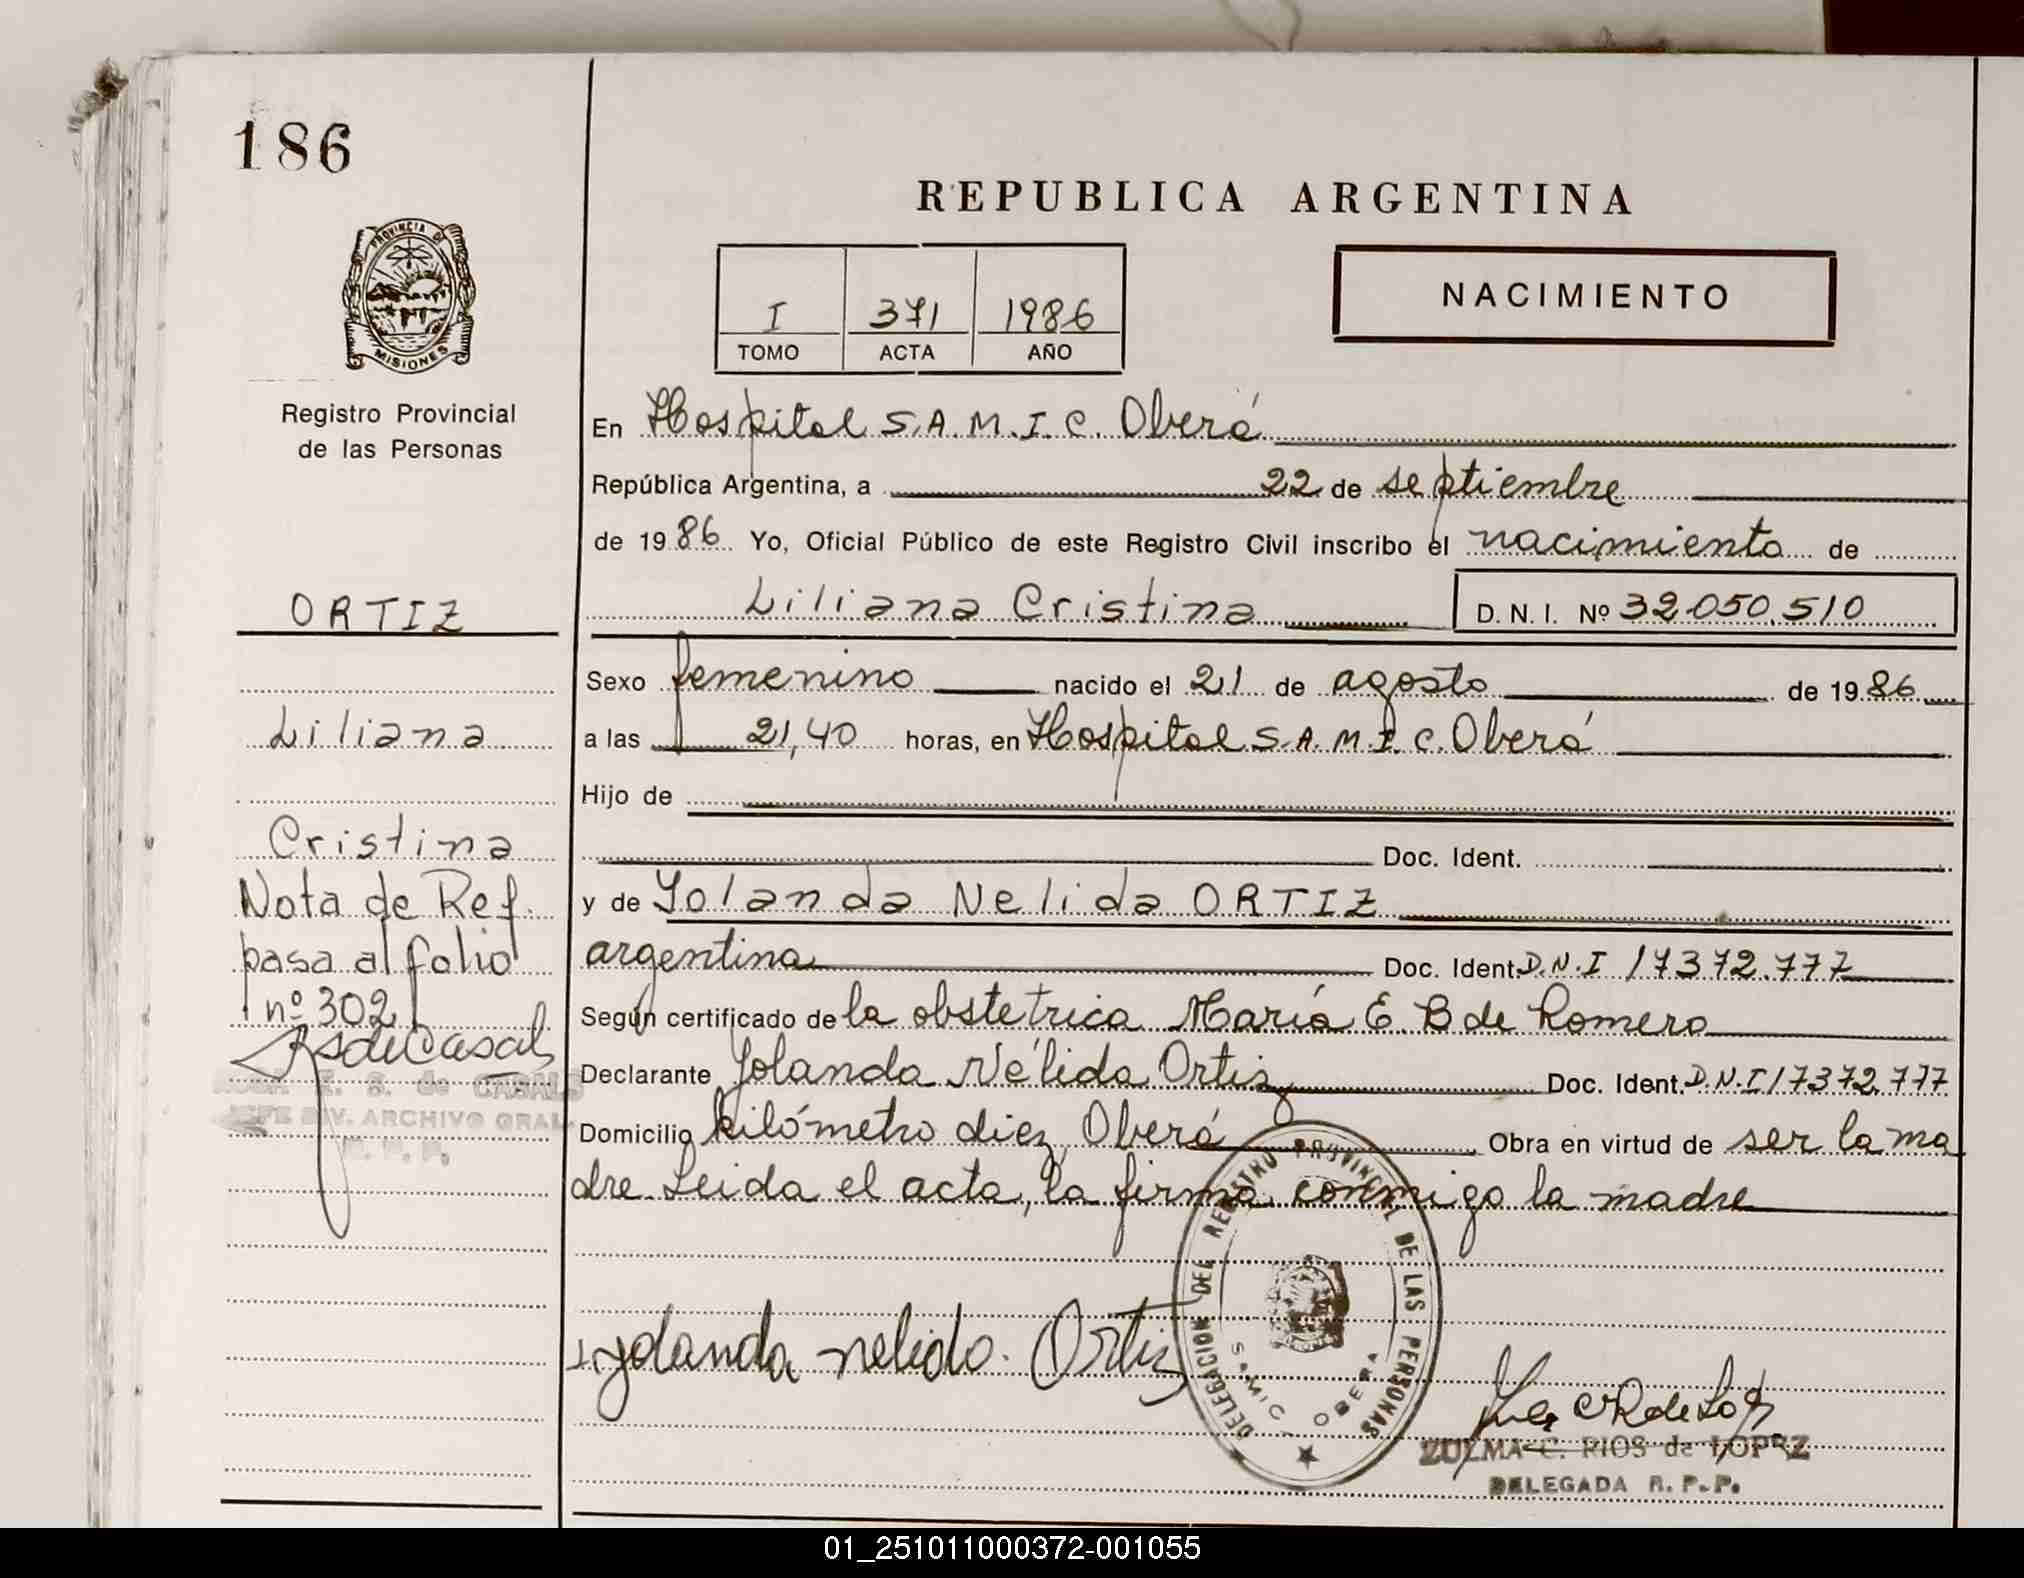 186
REPUBLICA ARGENTINA
PROVINCIA DE
MISIONES
I 371 1986
TOMO ACTA AÑO
NACIMIENTO
Registro Provincial
de las Personas
En Hospital S.A.M.I.C. Oberá
República Argentina, a 22 de septiembre
de 1986 Yo, Oficial Público de este Registro Civil inscribo el nacimiento de
Liliana Cristina D.N.I. Nº 32.050.510
ORTIZ
Liliana
Cristina
Nota de Ref.
pasa al folio
nº 302
E. S. de CASALS
JEFE DIV. ARCHIVO GRAL.
R. P. P.
Sexo femenino nacido el 21 de agosto de 1986
a las 21,40 horas, en Hospital S.A.M.I.C. Oberá
Hijo de
Doc. Ident.
y de Yolanda Nelida ORTIZ
argentina Doc. Ident. D.N.I 17372.777
Según certificado de la obstetrica María E. B de Romero
Declarante Yolanda Nélida Ortiz Doc. Ident. D.N.I 17372.777
Domicilio kilómetro diez Oberá Obra en virtud de ser la ma
dre. Leida el acta, la firma conmigo la madre
Yolanda nelida. Ortiz
DELEGACION DEL REGISTRO PROVINCIAL DE LAS PERSONAS
SAMIC - OBERA
ZULMA C. RIOS de LOPEZ
DELEGADA R. P. P.
01_251011000372-001055